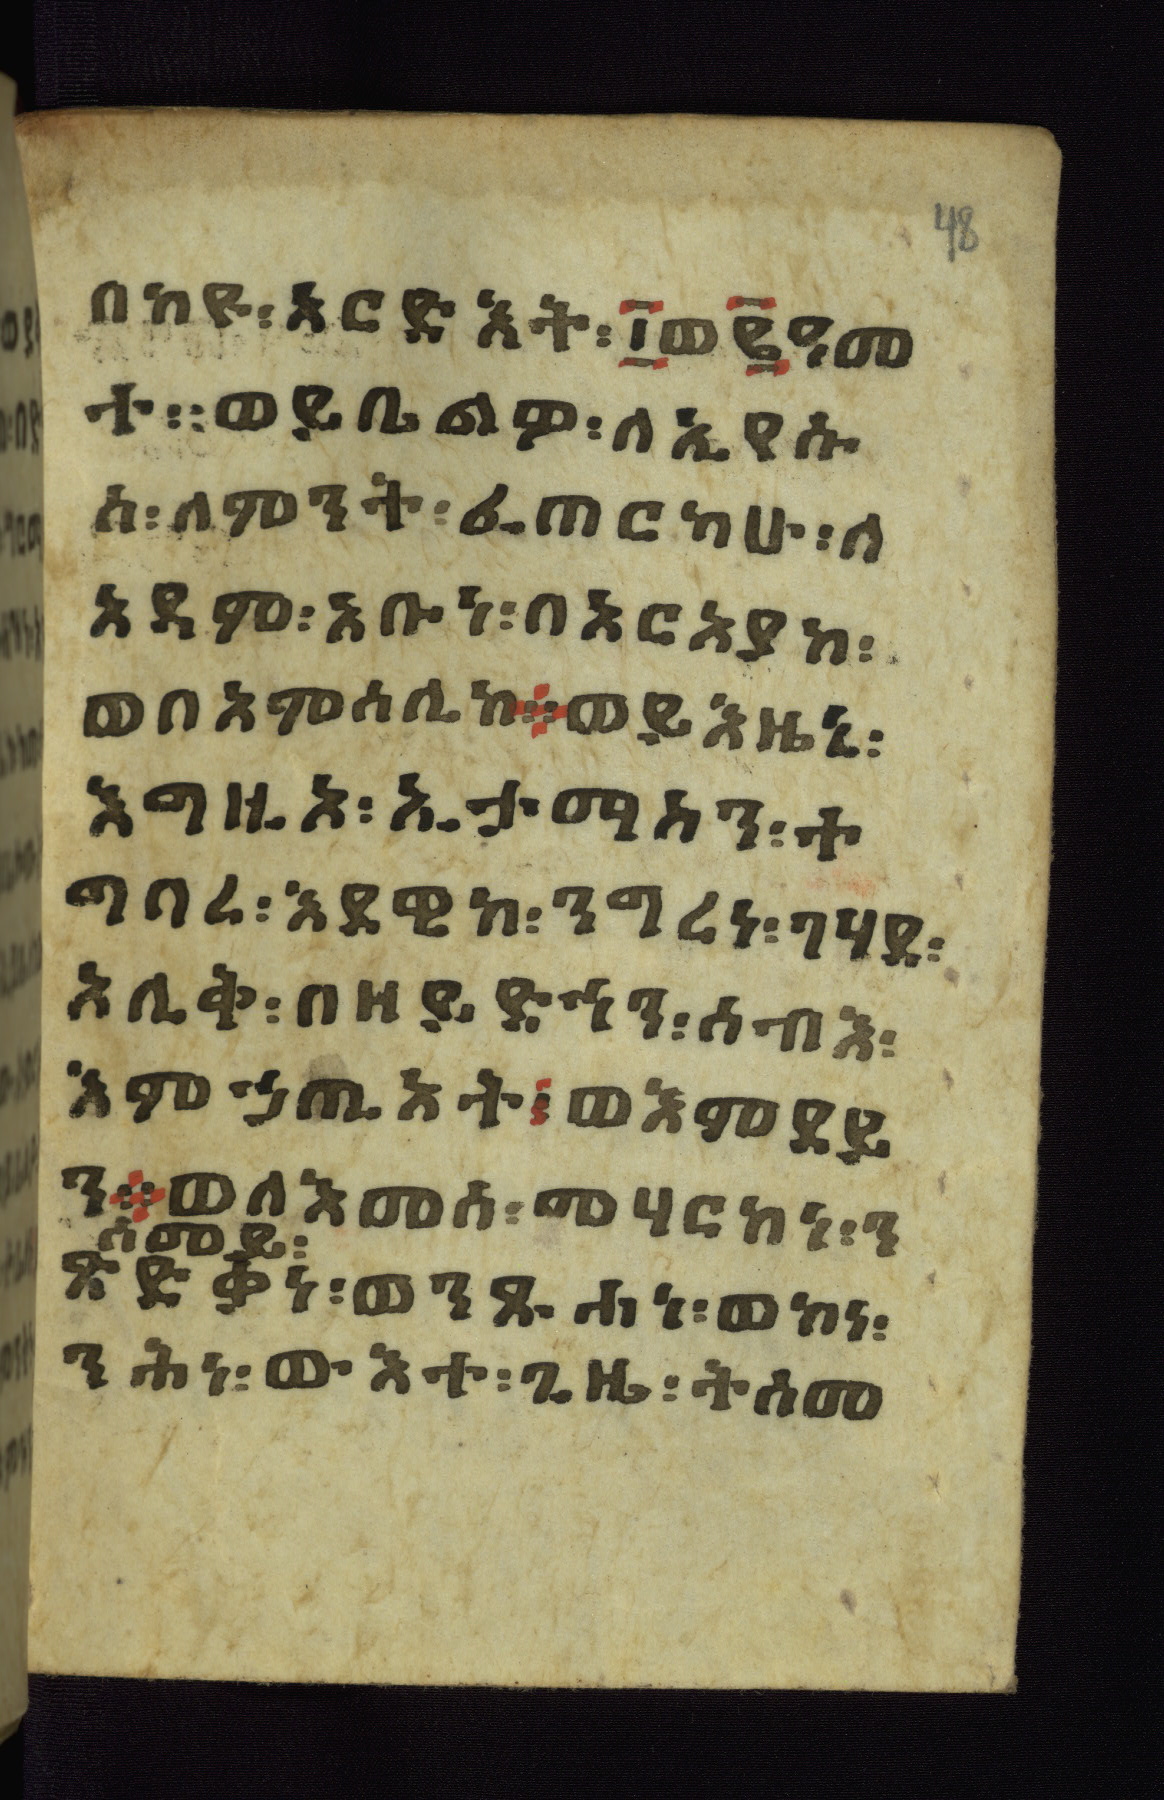 48
በከዮ፡አርድእት፡፲ወ፪ዓመ
ት፡፡ወይቤልዎ፡ለኢየሱ
ስ፡ለምንት፡ፈጠርካሁ፡ለ
አዳም፡አቡነ፡በአርአያከ፡
ወበአምሳሊከ፨ወይእዜኒ፡
እግዚአ፡ኢታማስን፡ተ
ግባረ፡እደዊከ፡ንግረነ፡ገሃደ፡
አሊቅ፡በዘይድኅን፡ሰብእ፡
እምኃጢአት፡ወእምደይ
ን፨ወለእመሰ፡መሃርከነ፡ን
ሰመይ፡
ጽድቃነ፡ወንጹሐነ፡ወከነ፡
ንሕነ፡ውእተ፡ጊዜ፡ትሰመ